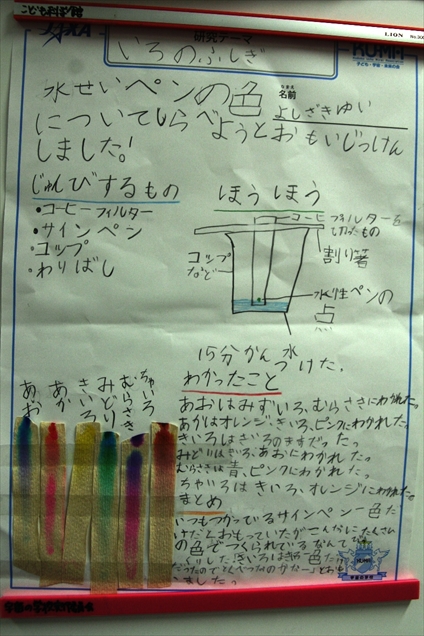 LION
研究テーマ
いろのふしぎ
水せいペンの色
名前 よしざきゆい
についてしらべようとおもいじっけん
しました!
じゅんびするもの
・コーヒーフィルター
・サインペン
・コップ
・わりばし
ほうほう
コーヒーフィルターを
切ったもの
割り箸
コップ
など
水性ペンの
点
水
15分かん
つけた.
あお
あか
きいろ
みどり
むらさき
ちゃいろ
わかったこと
あおはみずいろ、むらさきにわかれた。
あかはオレンジ、きいろ、ピンクにわかれた。
きいろはきいろのままだった。
みどりはきいろ、あおにわかれた。
むらさきは青、ピンクにわかれた。
ちゃいろはきいろ、オレンジにわかれた。
まとめ
いつもつかっているサインペン一色だ
けだとおもっていたがこんなにたくさん
の色でつくられているなんて